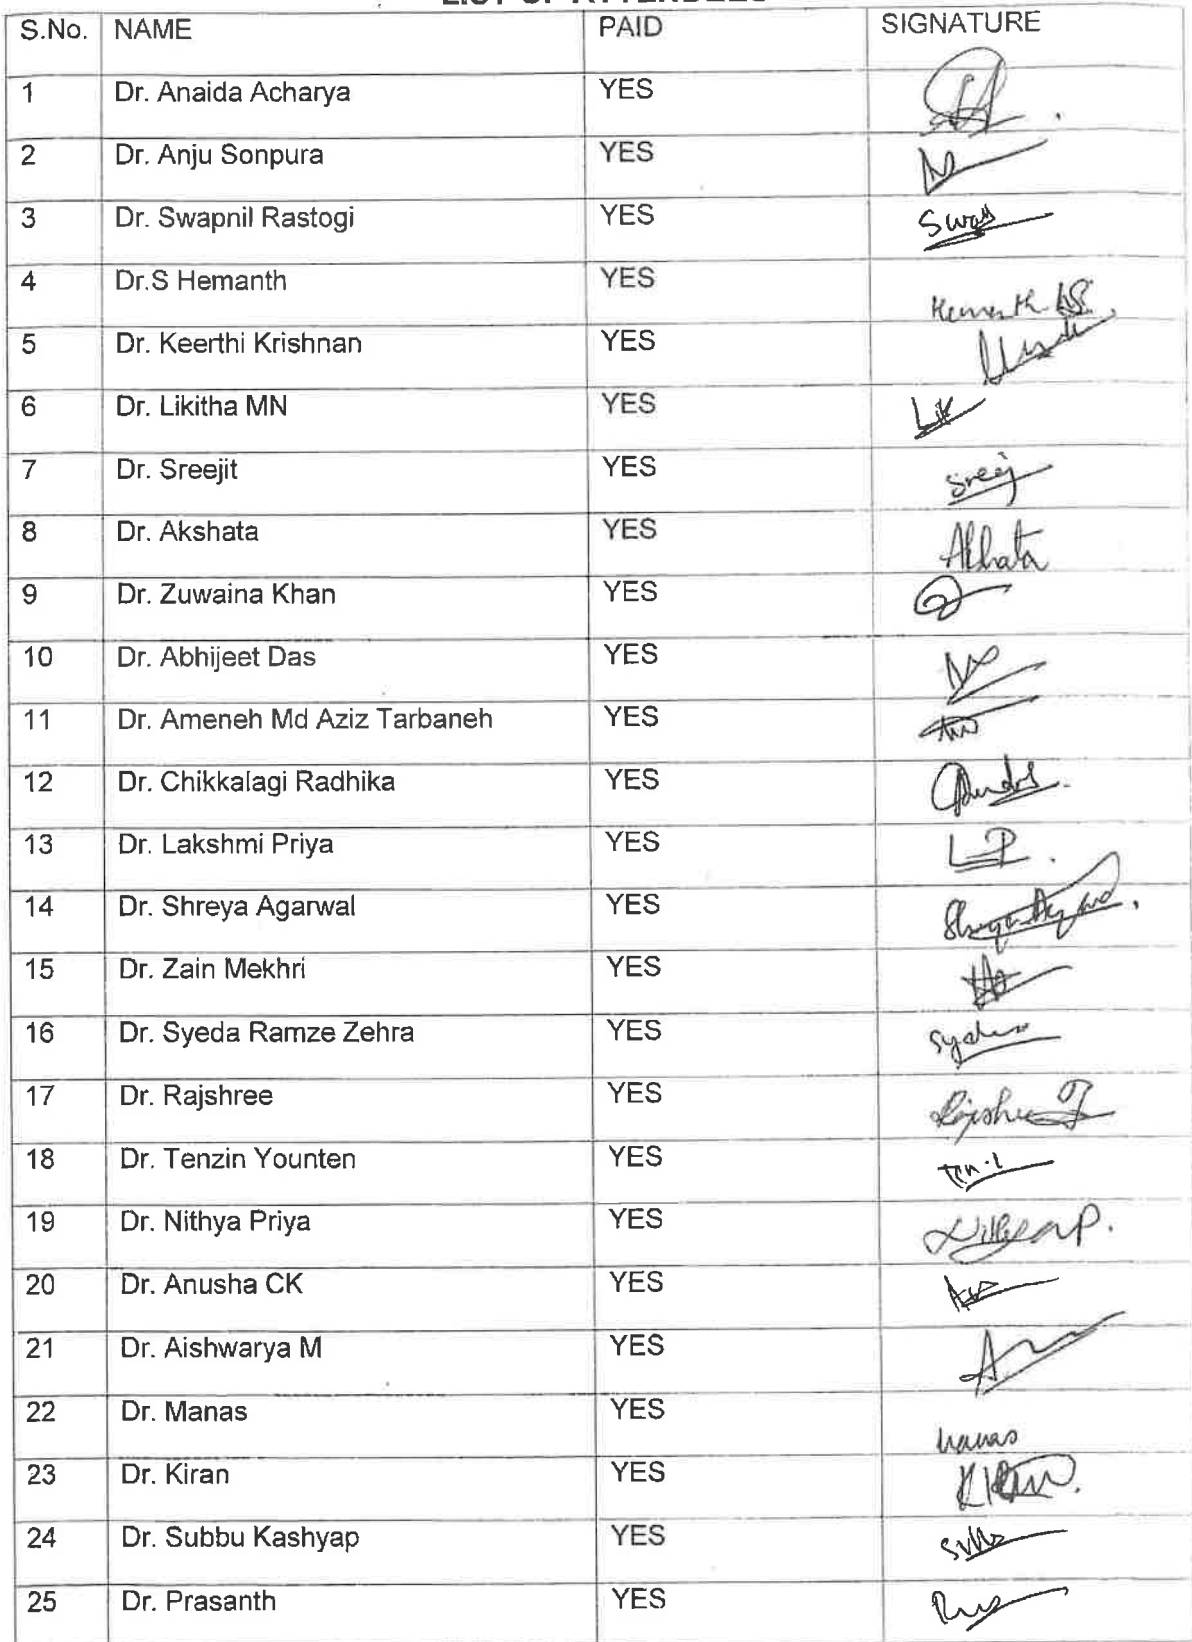 LIST OF ATTENDEES
S.No. NAME PAID SIGNATURE
1 Dr. Anaida Acharya YES
2 Dr. Anju Sonpura YES
3 Dr. Swapnil Rastogi YES
4 Dr.S Hemanth YES
5 Dr. Keerthi Krishnan YES
6 Dr. Likitha MN YES Lik
7 Dr. Sreejit YES Sreej
8 Dr. Akshata YES
9 Dr. Zuwaina Khan YES
10 Dr. Abhijeet Das YES
11 Dr. Ameneh Md Aziz Tarbaneh YES
12 Dr. Chikkalagi Radhika YES
13 Dr. Lakshmi Priya YES LP.
14 Dr. Shreya Agarwal YES
15 Dr. Zain Mekhri YES
16 Dr. Syeda Ramze Zehra YES
17 Dr. Rajshree YES
18 Dr. Tenzin Younten YES
19 Dr. Nithya Priya YES
20 Dr. Anusha CK YES
21 Dr. Aishwarya M YES
22 Dr. Manas YES manas
23 Dr. Kiran YES
24 Dr. Subbu Kashyap YES
25 Dr. Prasanth YES